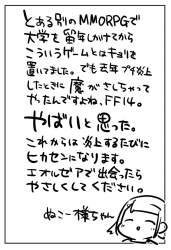 とある別のMMORPGで
大学を留年しかけてから
こういうゲームとはキョリを
置いてました。でも去年プチ炎上
したときに魔がさしちゃって
やったんですよね、FF14。
やばいと思った。
これからは炎上するたびに
ヒカセンになります。
エオルゼアで出会ったら
やさしくしてください。
ぬこー様ちゃん